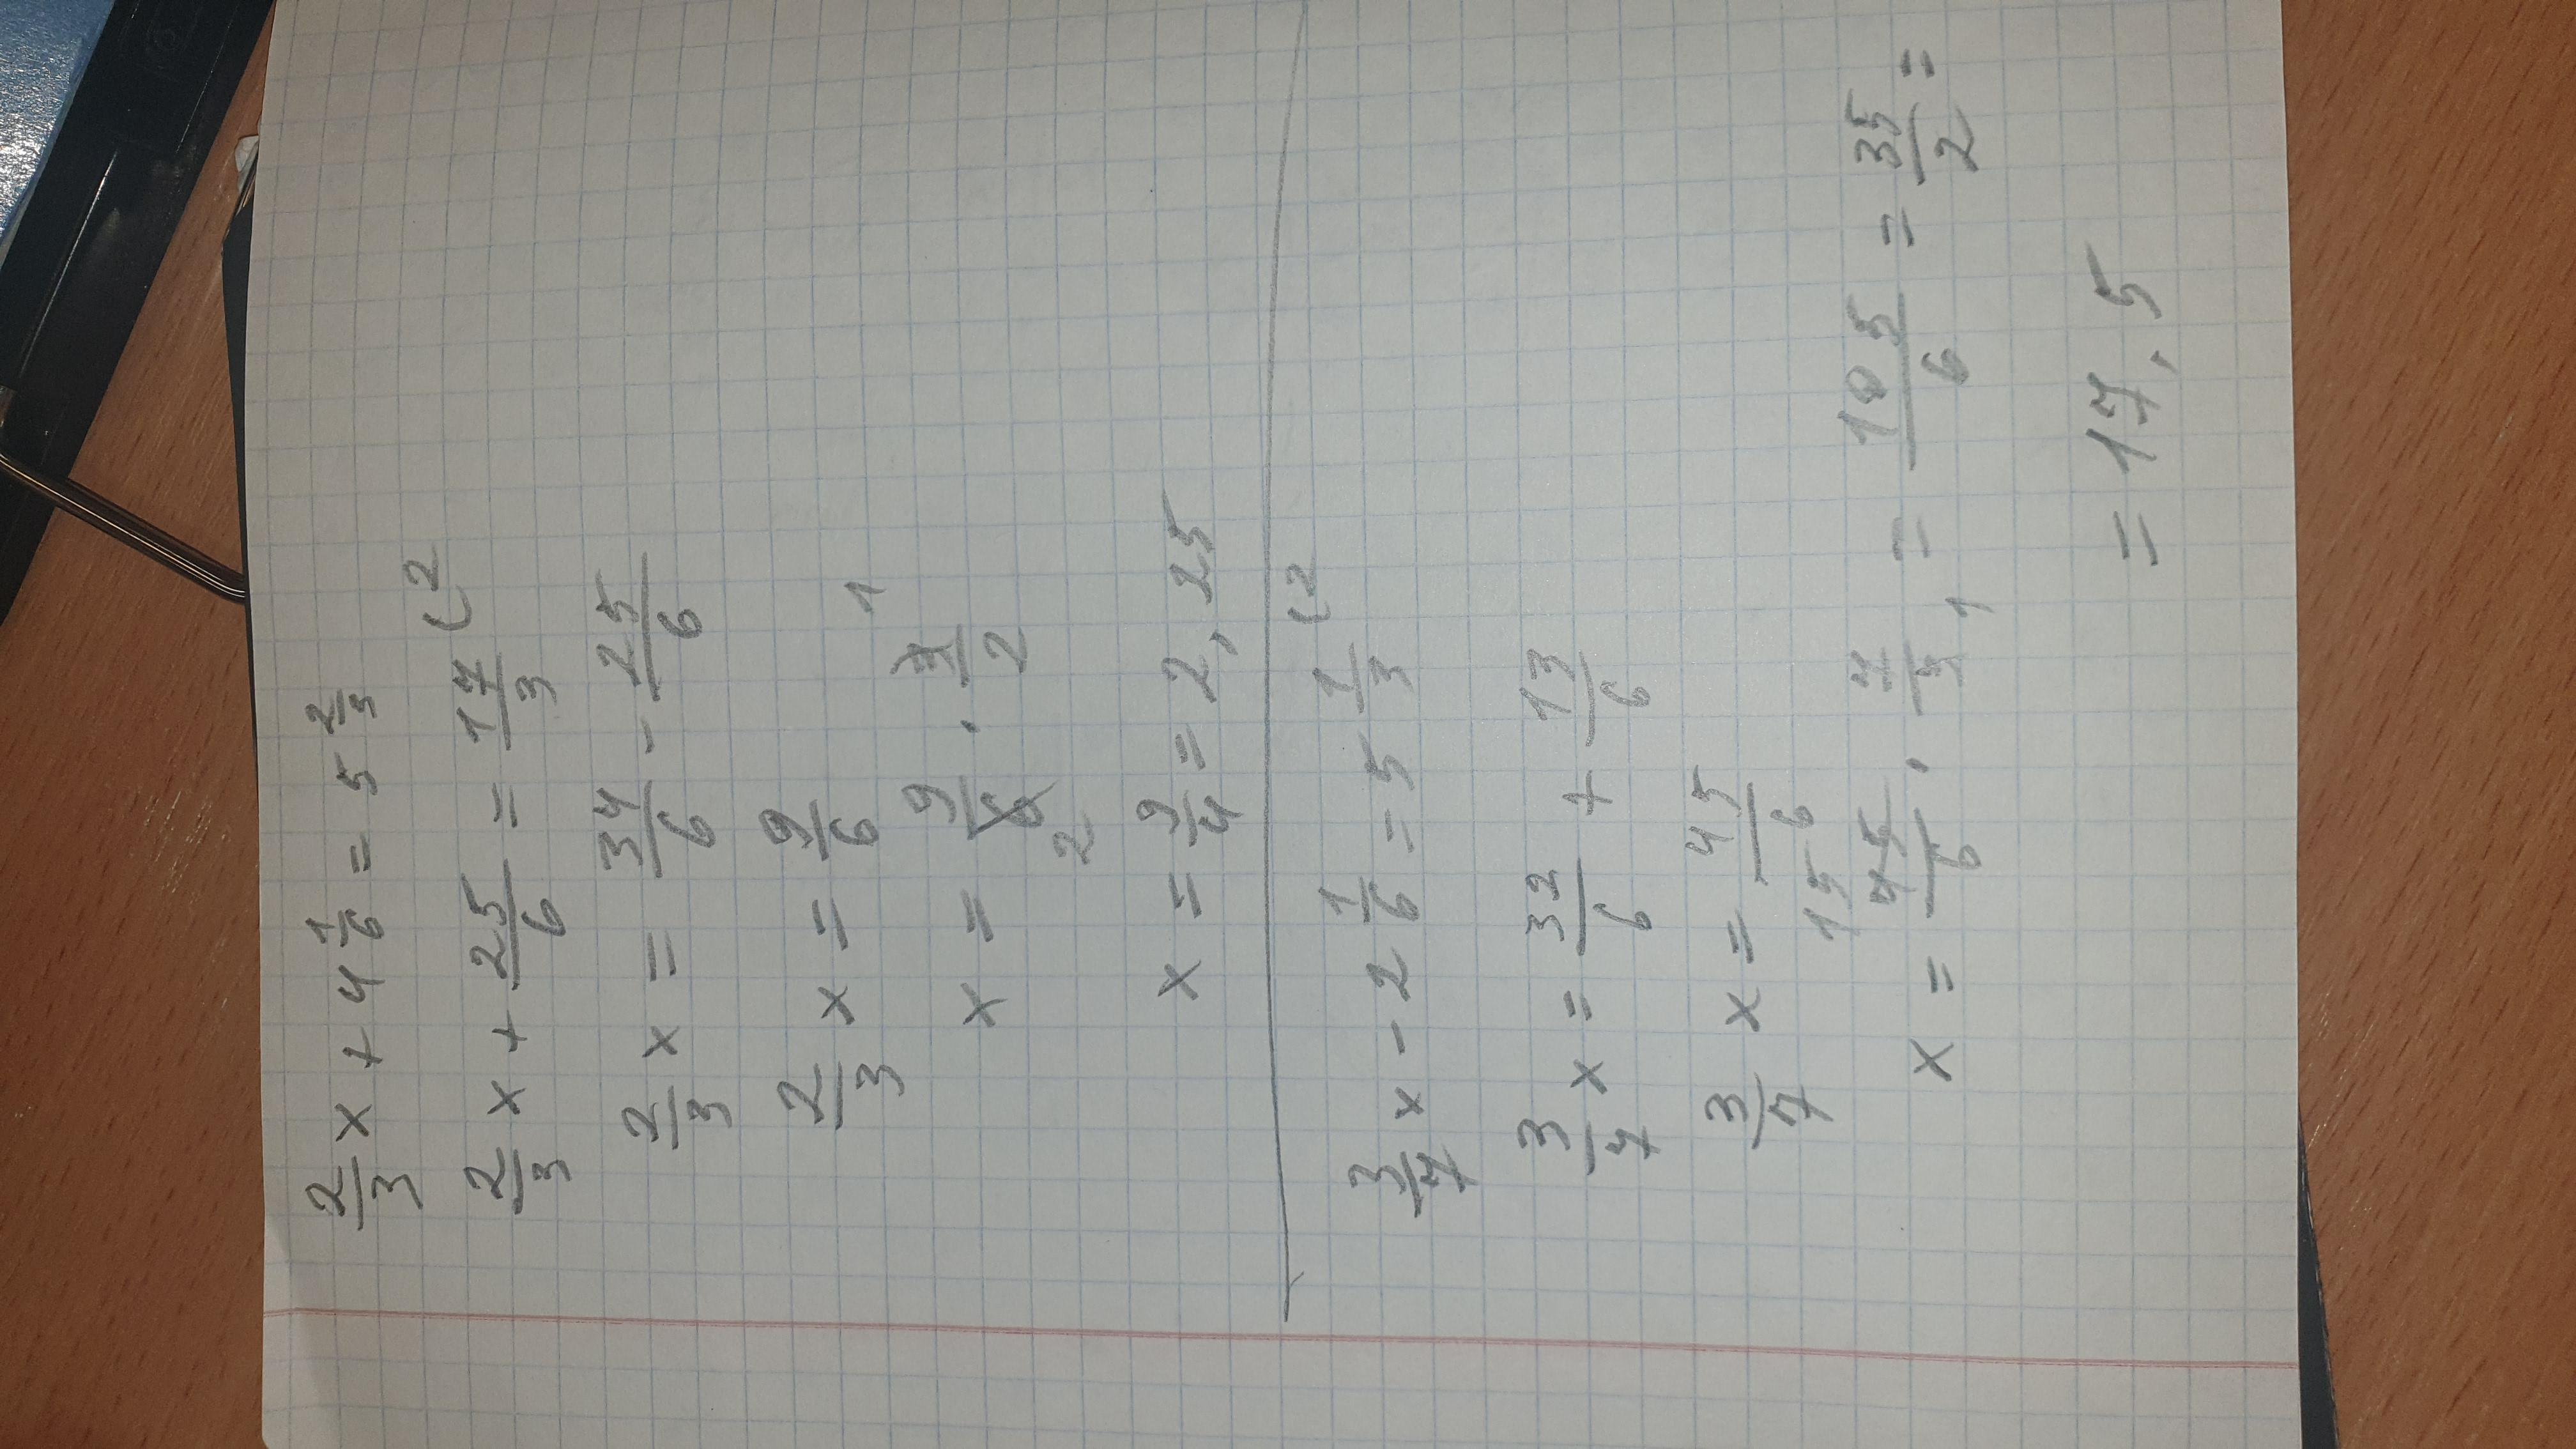 2/3 x + 4 1/6 = 5 2/3
2/3 x + 25/6 = 17/3 (2
2/3 x = 34/6 - 25/6
2/3 x = 9/6
x = 9/6 2 · 3/2 1
x = 9/4 = 2,25
3/7 x - 2 1/6 = 5 1/3 (2
3/7 x = 32/6 + 13/6
3/7 x = 45/6
x = 45/6 15 · 7/3 1 = 105/6 = 35/2 =
= 17,5